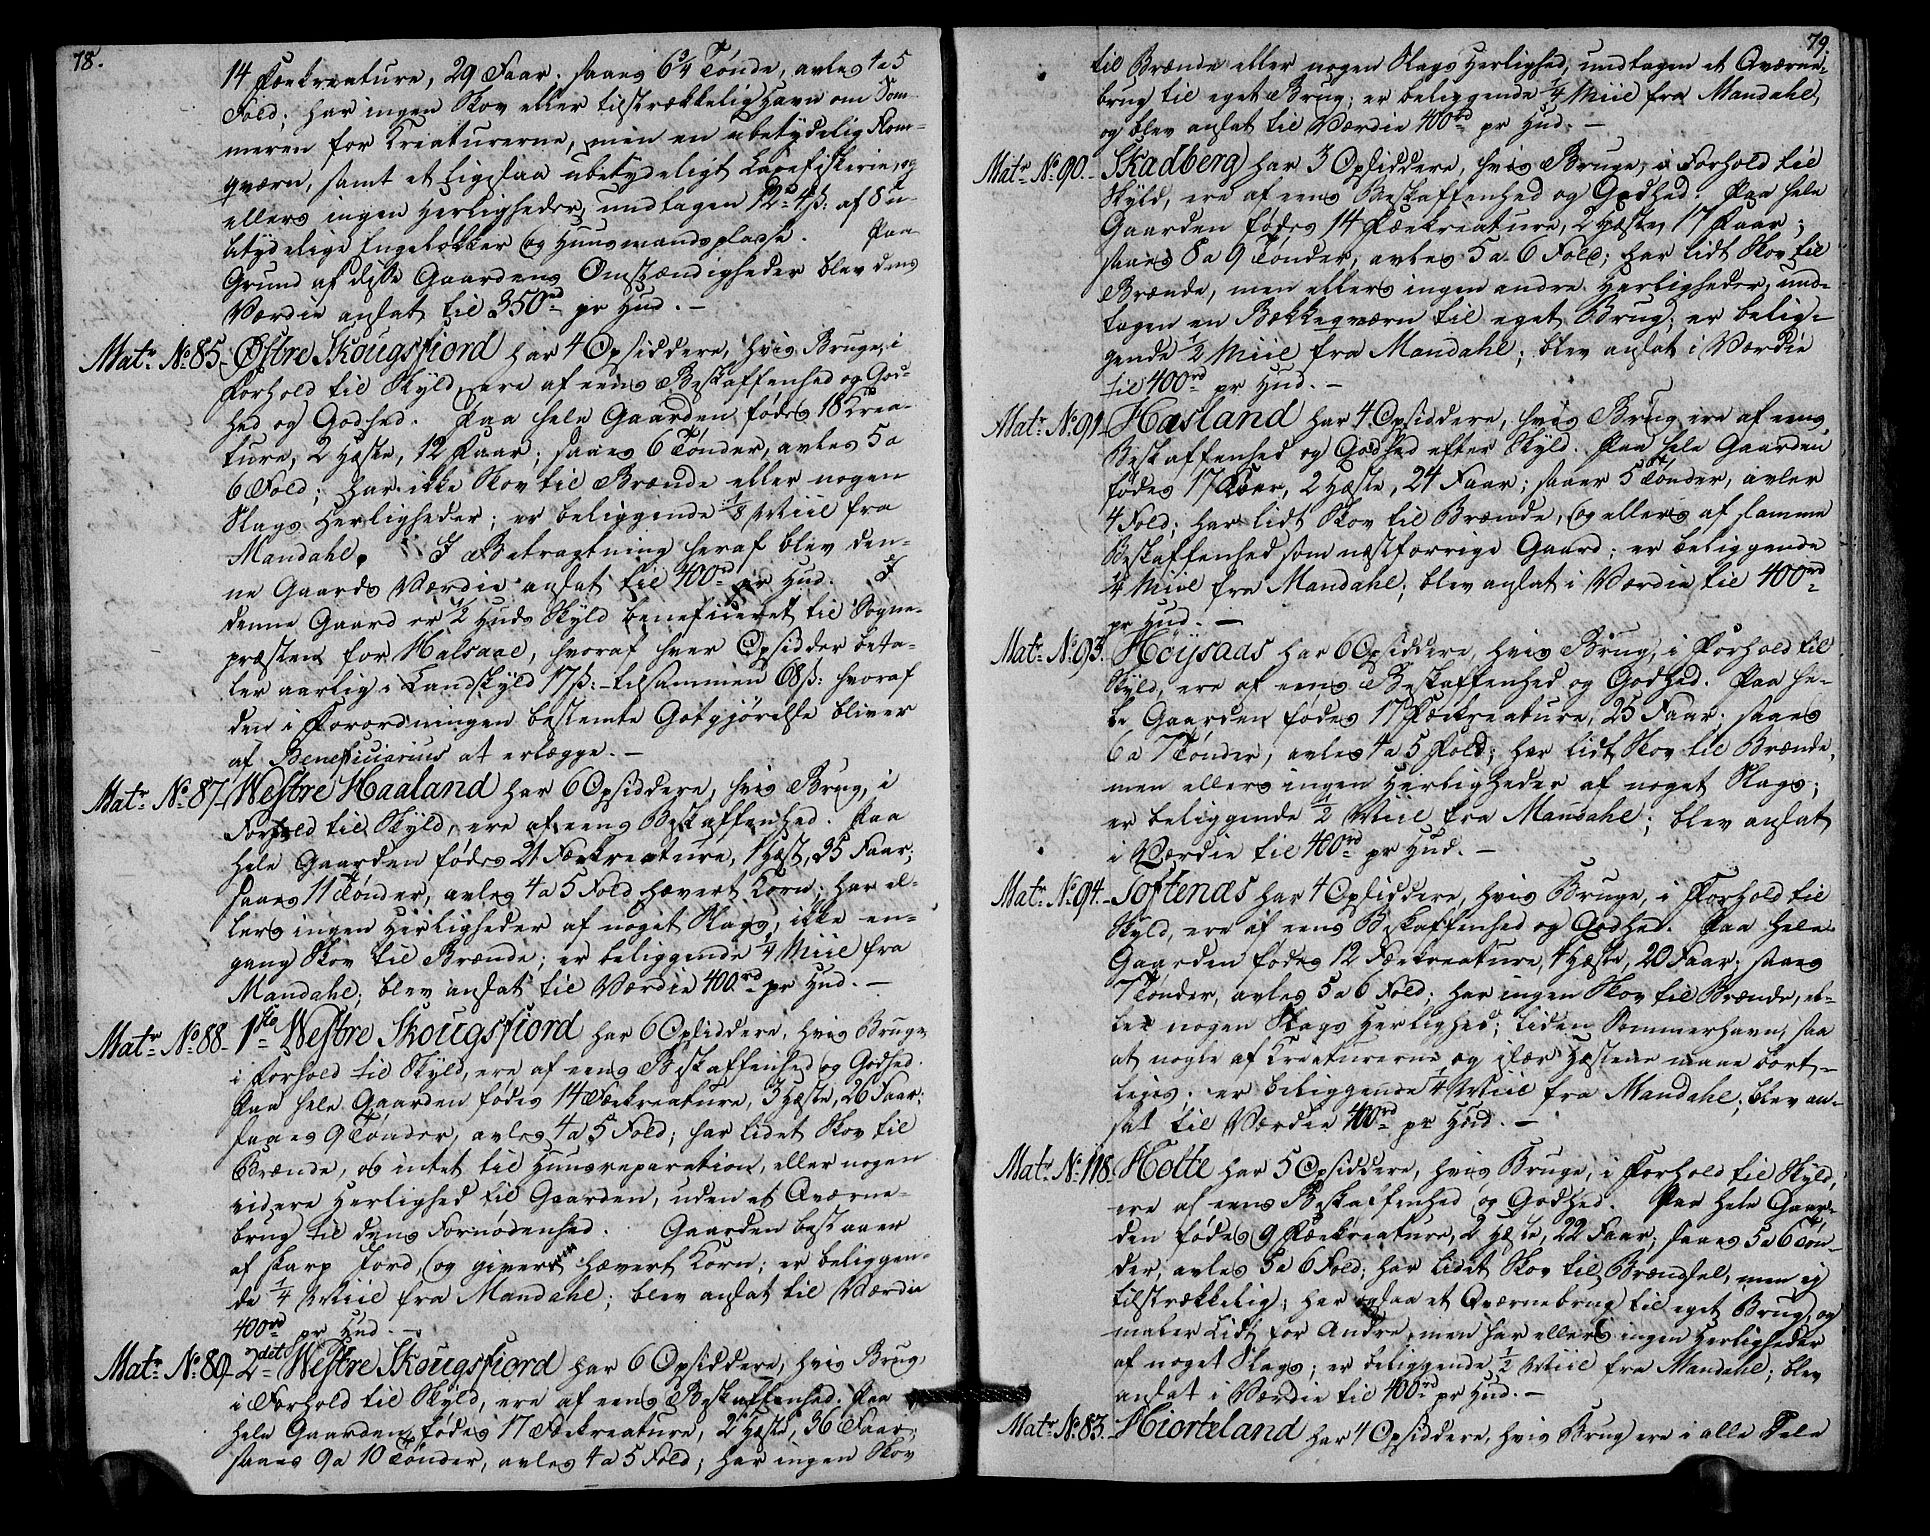 78.
14 Fækreature, 29 Faar; saaes 6 3/4 Tønde, avles 4 a 5
Fold; har ingen Skov eller tilstrækkelig Havn om Som-
meren for Kreaturerne, men en ubetydelig Flom-
qværn, samt et ligesaa ubetydeligt Laxefiskerie, og
ellers ingen Herligheder, undtagen 12 4 ß: af 8 u-
betydelige Engeløkker og Huusmandspladse. Paa
Grund af disse Gaardens Omstændigheder blev dens
Værdie ansat til 350 rd pr Hud. –
Matr. No. 85. Østre Skougsfiord har 4 Opsiddere, hvis Bruge, i
Forhold til Skyld, ere af eens Beskaffenhed og God-
hed og Godhed. Paa hele Gaarden fødes 18 Krea-
ture, 2 Hæste, 12 Faar; saaes 6 Tønder, avles 5 a
6 Fold; har ikke Skov til Brænde eller nogen
Slags Herligheder; er beliggende 1/8 Miil fra
Mandahl. I Betragtning heraf blev den-
ne Gaards Værdie ansat til 400 rd pr Hud. I
denne Gaard er 1/2 Huds Skyld beneficeret til Sogne-
præsten for Halsaae, hvoraf hver Opsidder beta-
ler aarlig i Landskyld 17 ß: – tilsammen 68 ß: hvoraf
den i Forordningen bestemte Godtgjørelse bliver
af Beneficiarius at erlægge. –
Matr. No. 87. Westre Haaland har 6 Opsiddere, hvis Brug, i
Forhold til Skyld, ere af eens Beskaffenhed. Paa
hele Gaarden fødes 21 Fækreature, 1 Hæst, 35 Faar;
saaes 11 Tønder, avles 4 a 5 Fold hævert Korn; har el-
lers ingen Herligheder af noget Slags, ikke en-
gang Skov til Brænde; er beliggende 1/4 Miil fra
Mandahl; blev ansat til Værdie 400 rd pr Hud. –
Matr. No. 88. 1ste Westre Skougsfiord har 6 Opsiddere, hvis Bruge
i Forhold til Skyld, ere af eens Beskaffenhed og Godhed.
Paa hele Gaarden fødes 14 Fækreature, 3 Hæste, 26 Faar;
saaes 9 Tønder, avles 4 a 5 Fold; har lidet Skov til
Brænde, og intet til Huusreparation, eller nogen
videre Herlighed til Gaarden, uden et Qværne-
brug til dens Fornødenhed. Gaarden bestaaer
af skarp Jord, og giver hævert Korn; er beliggen-
de 1/4 Miil fra Mandahl; blev ansat til Værdie
400 rd pr Hud. –
Matr. No. 89. 2det Westre Skougsfiord har 6 Opsiddere, hvis Brug
i Forhold til Skyld, ere af eens Beskaffenhed. Paa
hele Gaarden fødes 17 Fækreature, 2 Hæste, 36 Faar;
saaes 9 a 10 Tønder, avles 4 a 5 Fold; har ingen Skov
79.
til Brænde eller nogen Slags Herlighed, undtagen et Qværne-
brug til eget Brug; er beliggende 1/4 Miil fra Mandahl,
og blev ansat til Værdie 400 rd pr Hud. –
Matr. No. 90. Skadberg har 3 Opsiddere, hvis Bruge, i Forhold til
Skyld, ere af eens Beskaffenhed og Godhed. Paa hele
Gaarden fødes 14 Fækreature, 2 Hæste, 17 Faar;
saaes 8 a 9 Tønder, avles 5 a 6 Fold; har lidt Skov til
Brænde, men ellers ingen andre Herligheder, und-
tagen en Bækkeqværn til eget Brug; er belig-
gende 1/2 Miil fra Mandahl; blev ansat i Værdie
til 400 rd pr Hud. –
Matr. No. 91. Hasland har 4 Opsiddere, hvis Brug ere af eens
Beskaffenhed og Godhed efter Skyld. Paa hele Gaarden
fødes 17 Køer, 2 Hæste, 24 Faar; saaer 5 Tønder, avler
4 Fold; har lidt Skov til Brænde, og ellers af samme
Beskaffenhed som næstforrige Gaard; er beliggende
1/4 Miil fra Mandahl; blev ansat i Værdie til 400 rd
pr Hud. –
Matr. No. 93. Høysaas har 6 Opsiddere, hvis Brug, i Forhold til
Skyld, ere af eens Beskaffenhed og Godhed. Paa he-
le Gaarden fødes 17 Fækreature, 25 Faar; saaes
6 a 7 Tønder, avles 4 a 5 Fold; har lidt Skov til Brænde,
men ellers ingen Herligheder af noget Slags;
er beliggende 1/2 Miil fra Mandahl; blev ansat
i Værdie til 400 rd pr Hud. –
Matr. No. 94. Toftenæs har 4 Opsiddere, hvis Bruge, i Forhold til
Skyld, ere af eens Beskaffenhed og Godhed. Paa hele
Gaarden fødes 12 Fækreature, 1 Hæste, 20 Faar; saaes
7 Tønder, avles 5 a 6 Fold; har ingen Skov til Brænde, el-
ler nogen Slags Herlighed; liden Sommerhavn, saa
at nogle af Kreaturerne og især Hæstene maae bort-
leies; er beliggende 1/4 Miil fra Mandahl; blev an-
sat til Værdie 400 rd pr Hud. –
Matr. No. 118. Holte har 5 Opsiddere, hvis Bruge, i Forhold til Skyld,
ere af eens Beskaffenhed og Godhed. Paa hele Gaar-
den fødes 9 Fækreature, 2 Hæste, 22 Faar; saaes 5 a 6 Tøn-
der, avles 5 a 6 Fold; har lidet Skov til Brændsel, men ey
tilstrækkelig; har ogsaa et Qværnebrug til eget Brug, og
maler lidt for Andre, men har ellers ingen Herligheder
af noget Slags; er beliggende 1/2 Miil fra Mandahl; blev
ansat i Værdie til 400 rd pr Hud. –
Matr. No. 83. Hiorteland har 4 Opsiddere, hvis Brug ere i alle Dele